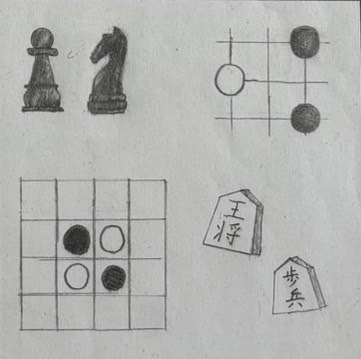 王
将
歩
兵